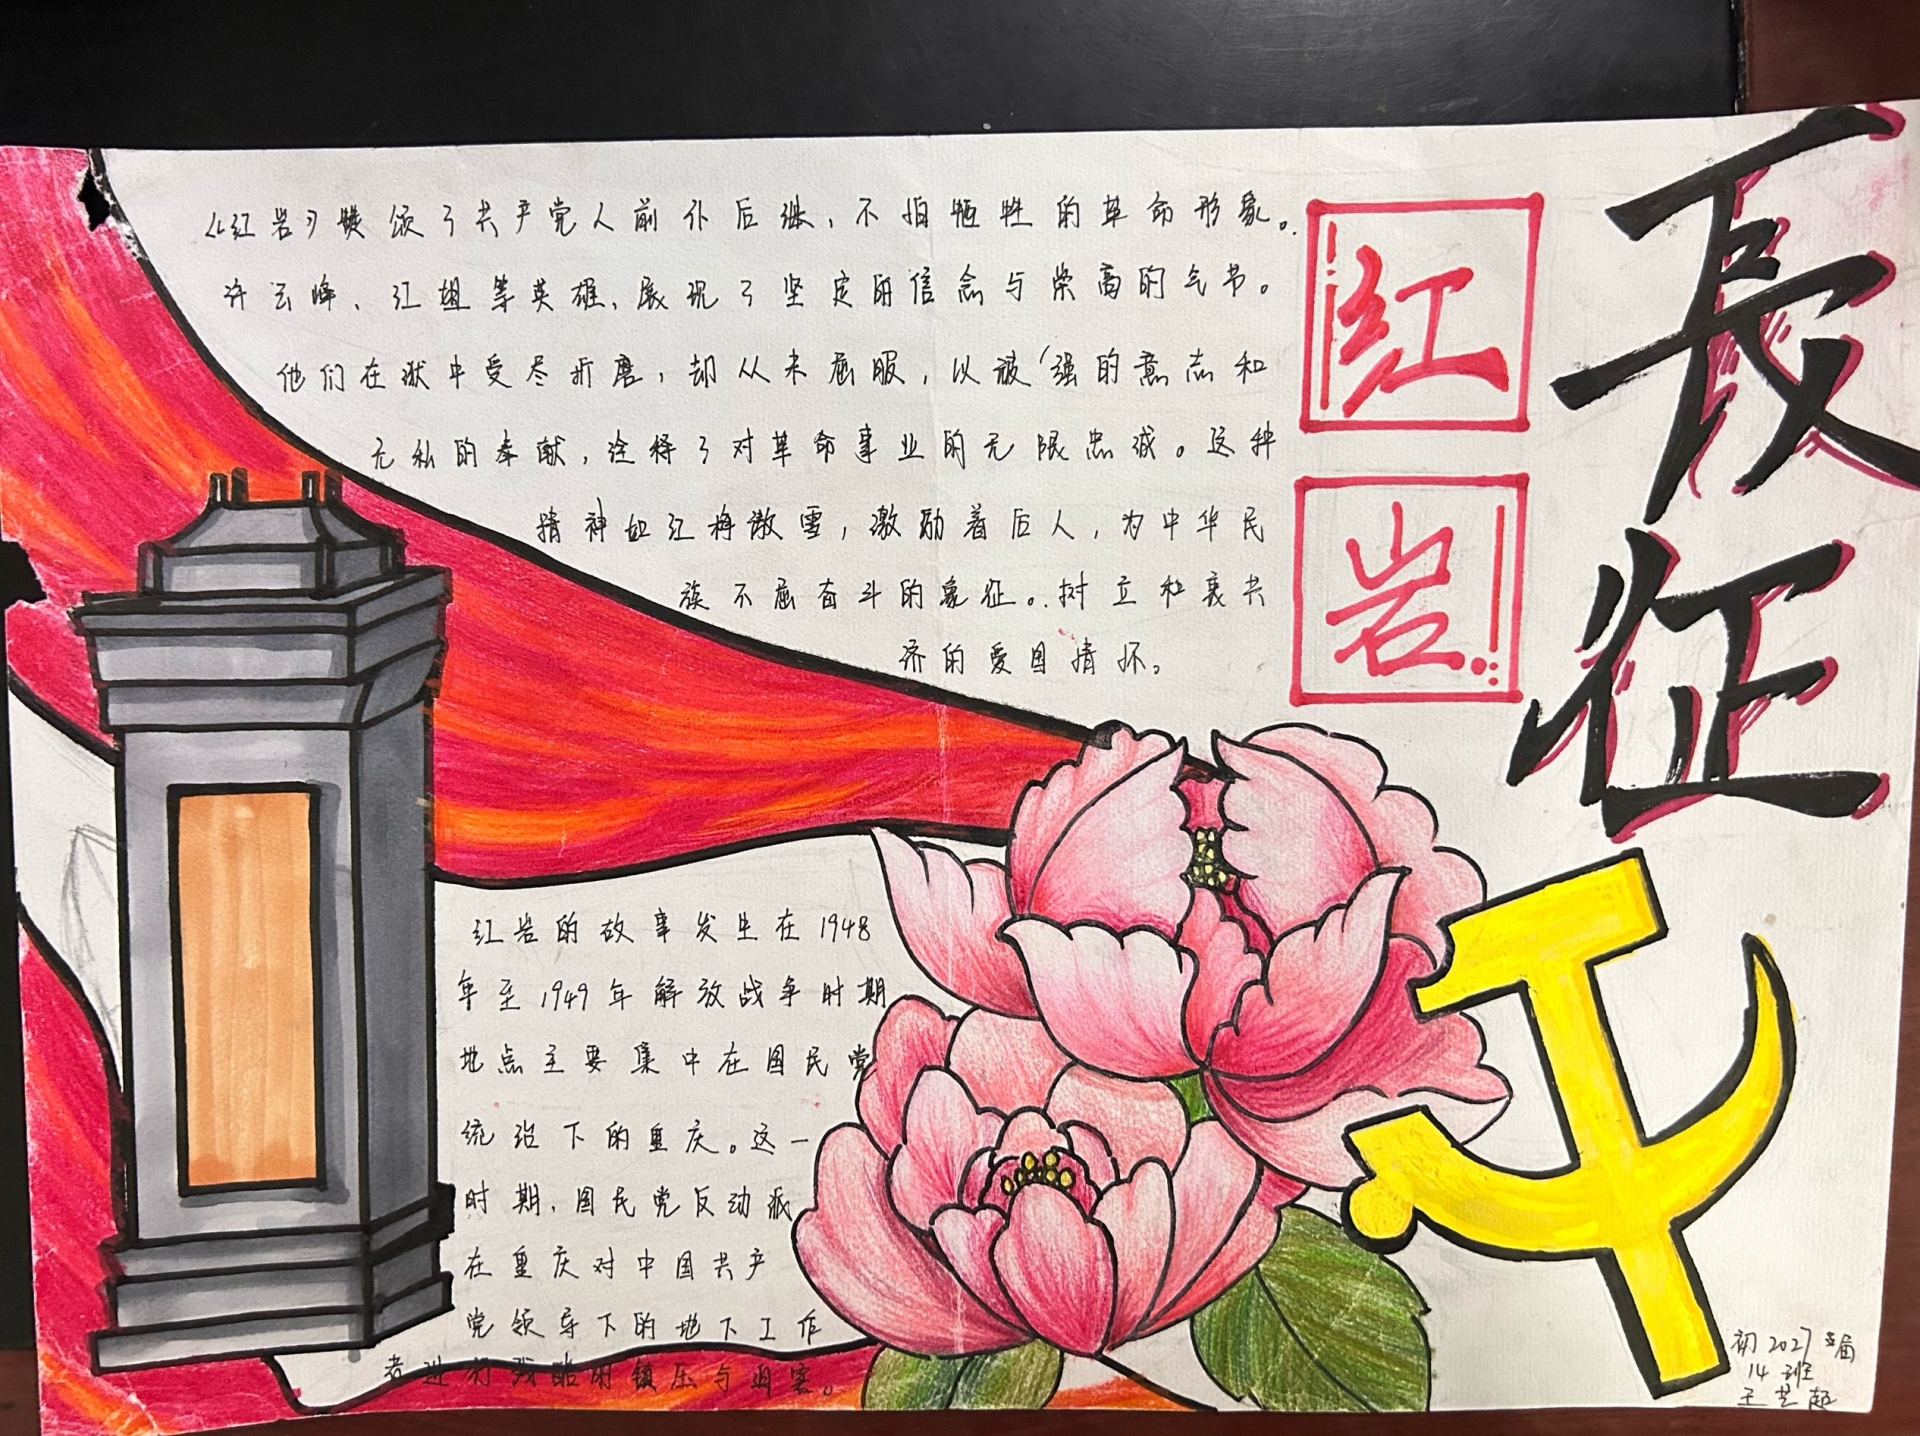 《红岩》赞颂了共产党人前仆后继，不怕牺牲的革命形象。
许云峰、江姐等英雄，展现了坚定的信念与崇高的气节。
他们在狱中受尽折磨，却从未屈服，以顽强的意志和
无私的奉献，诠释了对革命事业的无限忠诚。这种
精神如红梅傲雪，激励着后人，为中华民
族不屈奋斗的象征。树立和衷共
济的爱国情怀。
红
岩
長
征
红岩的故事发生在1948
年至1949年解放战争时期
地点主要集中在国民党
统治下的重庆。这一
时期，国民党反动派
在重庆对中国共产
党领导下的地下工作
者进行残酷的镇压与迫害。
初2027届
14班
王艺